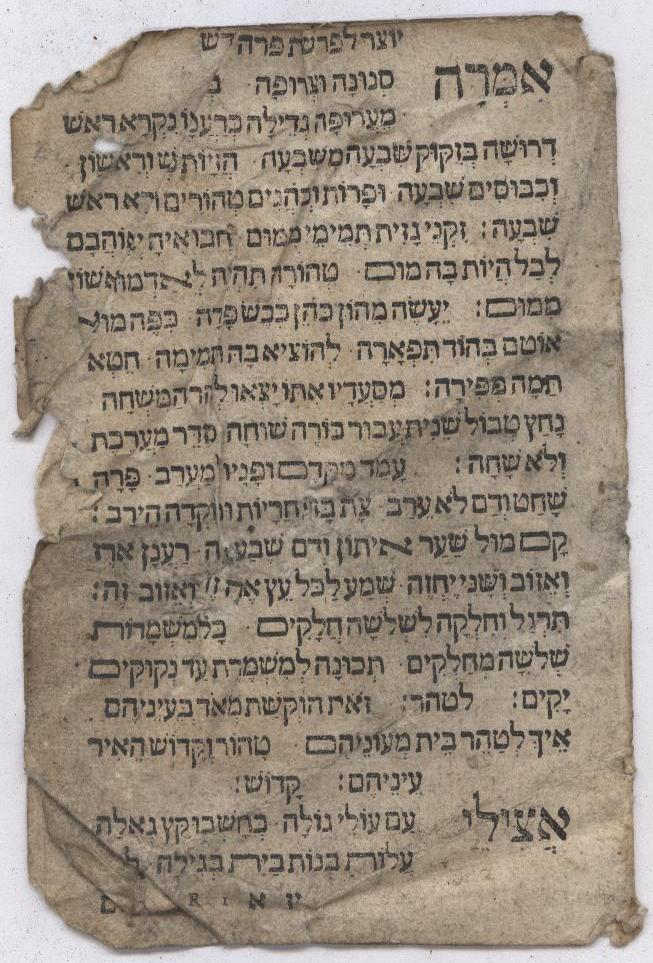 יוצר לפרשת פרה דש
אִמְרָה סנונה וצרופה
מערופה גדילה כרענו נקרא ראש
דרושה בזקוק שבעה משבעה הזיות ש וראשון
וכבוסים שבעה ופרות וכהנים טהורים ורא ראש
שבעה: זקני גזית תמימי ממום חבואיה יזוהבם
לבל היות בה מום טהורה תהיה
ממום: יעשה מהון כהן כבש פדה כפה
אוטם בהוד תפארה להוציא בה תמימה חטא
תמה מפירה: מסעדיו אתו יצאו להר המשחה
נחץ טבול שנית עבור בורה שוחה סדר מערכת
ולא שחה: עמד מקדם ופניו מערב פרה
שחט ודם לא ערב צת בזוי חריות ווקדה הירב:
קם מול שער איתון ודם שבעה רענן ארז
ואזוב ושני יחזה שמע לכל עץ ואזוב זה:
תרגל וחלקה לשלשה חלקים בל משמרות
שלשה מחלקים תכונה למשמרת עד נקוקים
יקים: לטהר: זאת הוקשת מאד בעיניהם
איך לטהר בית מעוניהם טהור וקדוש האיר
עיניהם: קדוש:
אצולי עם עולי גולה כחשבו קץ גאלה
עלות בנות בירת בגילה